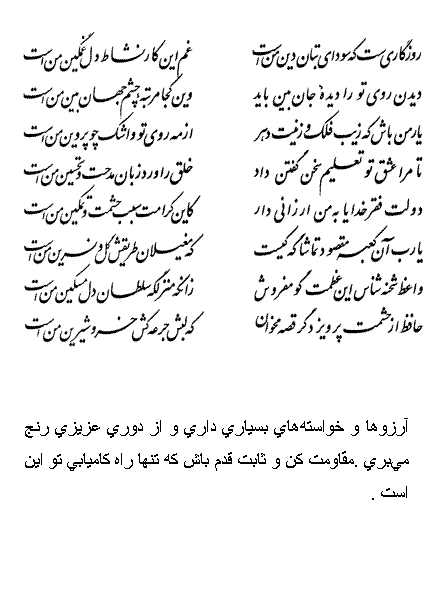 روزگاری ست که سودای بتان دین من است غم این کار نشاط دل غمگین من است
دیدن روی تو را دیدهٔ جان بین باید وین کجا مرتبهٔ چشم جهان بین من است
یار من باش که زیب فلک و زینت دهر از مه روی تو و اشک چو پروین من است
تا مرا عشق تو تعلیم سخن گفتن داد خلق را ورد زبان مدحت و تحسین من است
دولت فقر خدایا به من ارزانی دار کاین کرامت سبب حشمت و تمکین من است
یارب آن کعبهٔ مقصود تماشاگه کیست که مغیلان طریقش گل و نسرین من است
واعظ شحنه شناس این عظمت گو مفروش زانکه منزلگه سلطان دل مسکین من است
حافظ از حشمت پرویز دگر قصه مخوان که لبش جرعه کش خسرو شیرین من است
آرزوها و خواسته‌هاي بسياري داري و از دوري عزيزي رنج
مي‌بري .مقاومت كن و ثابت قدم باش كه تنها راه كاميابي تو اين
است .